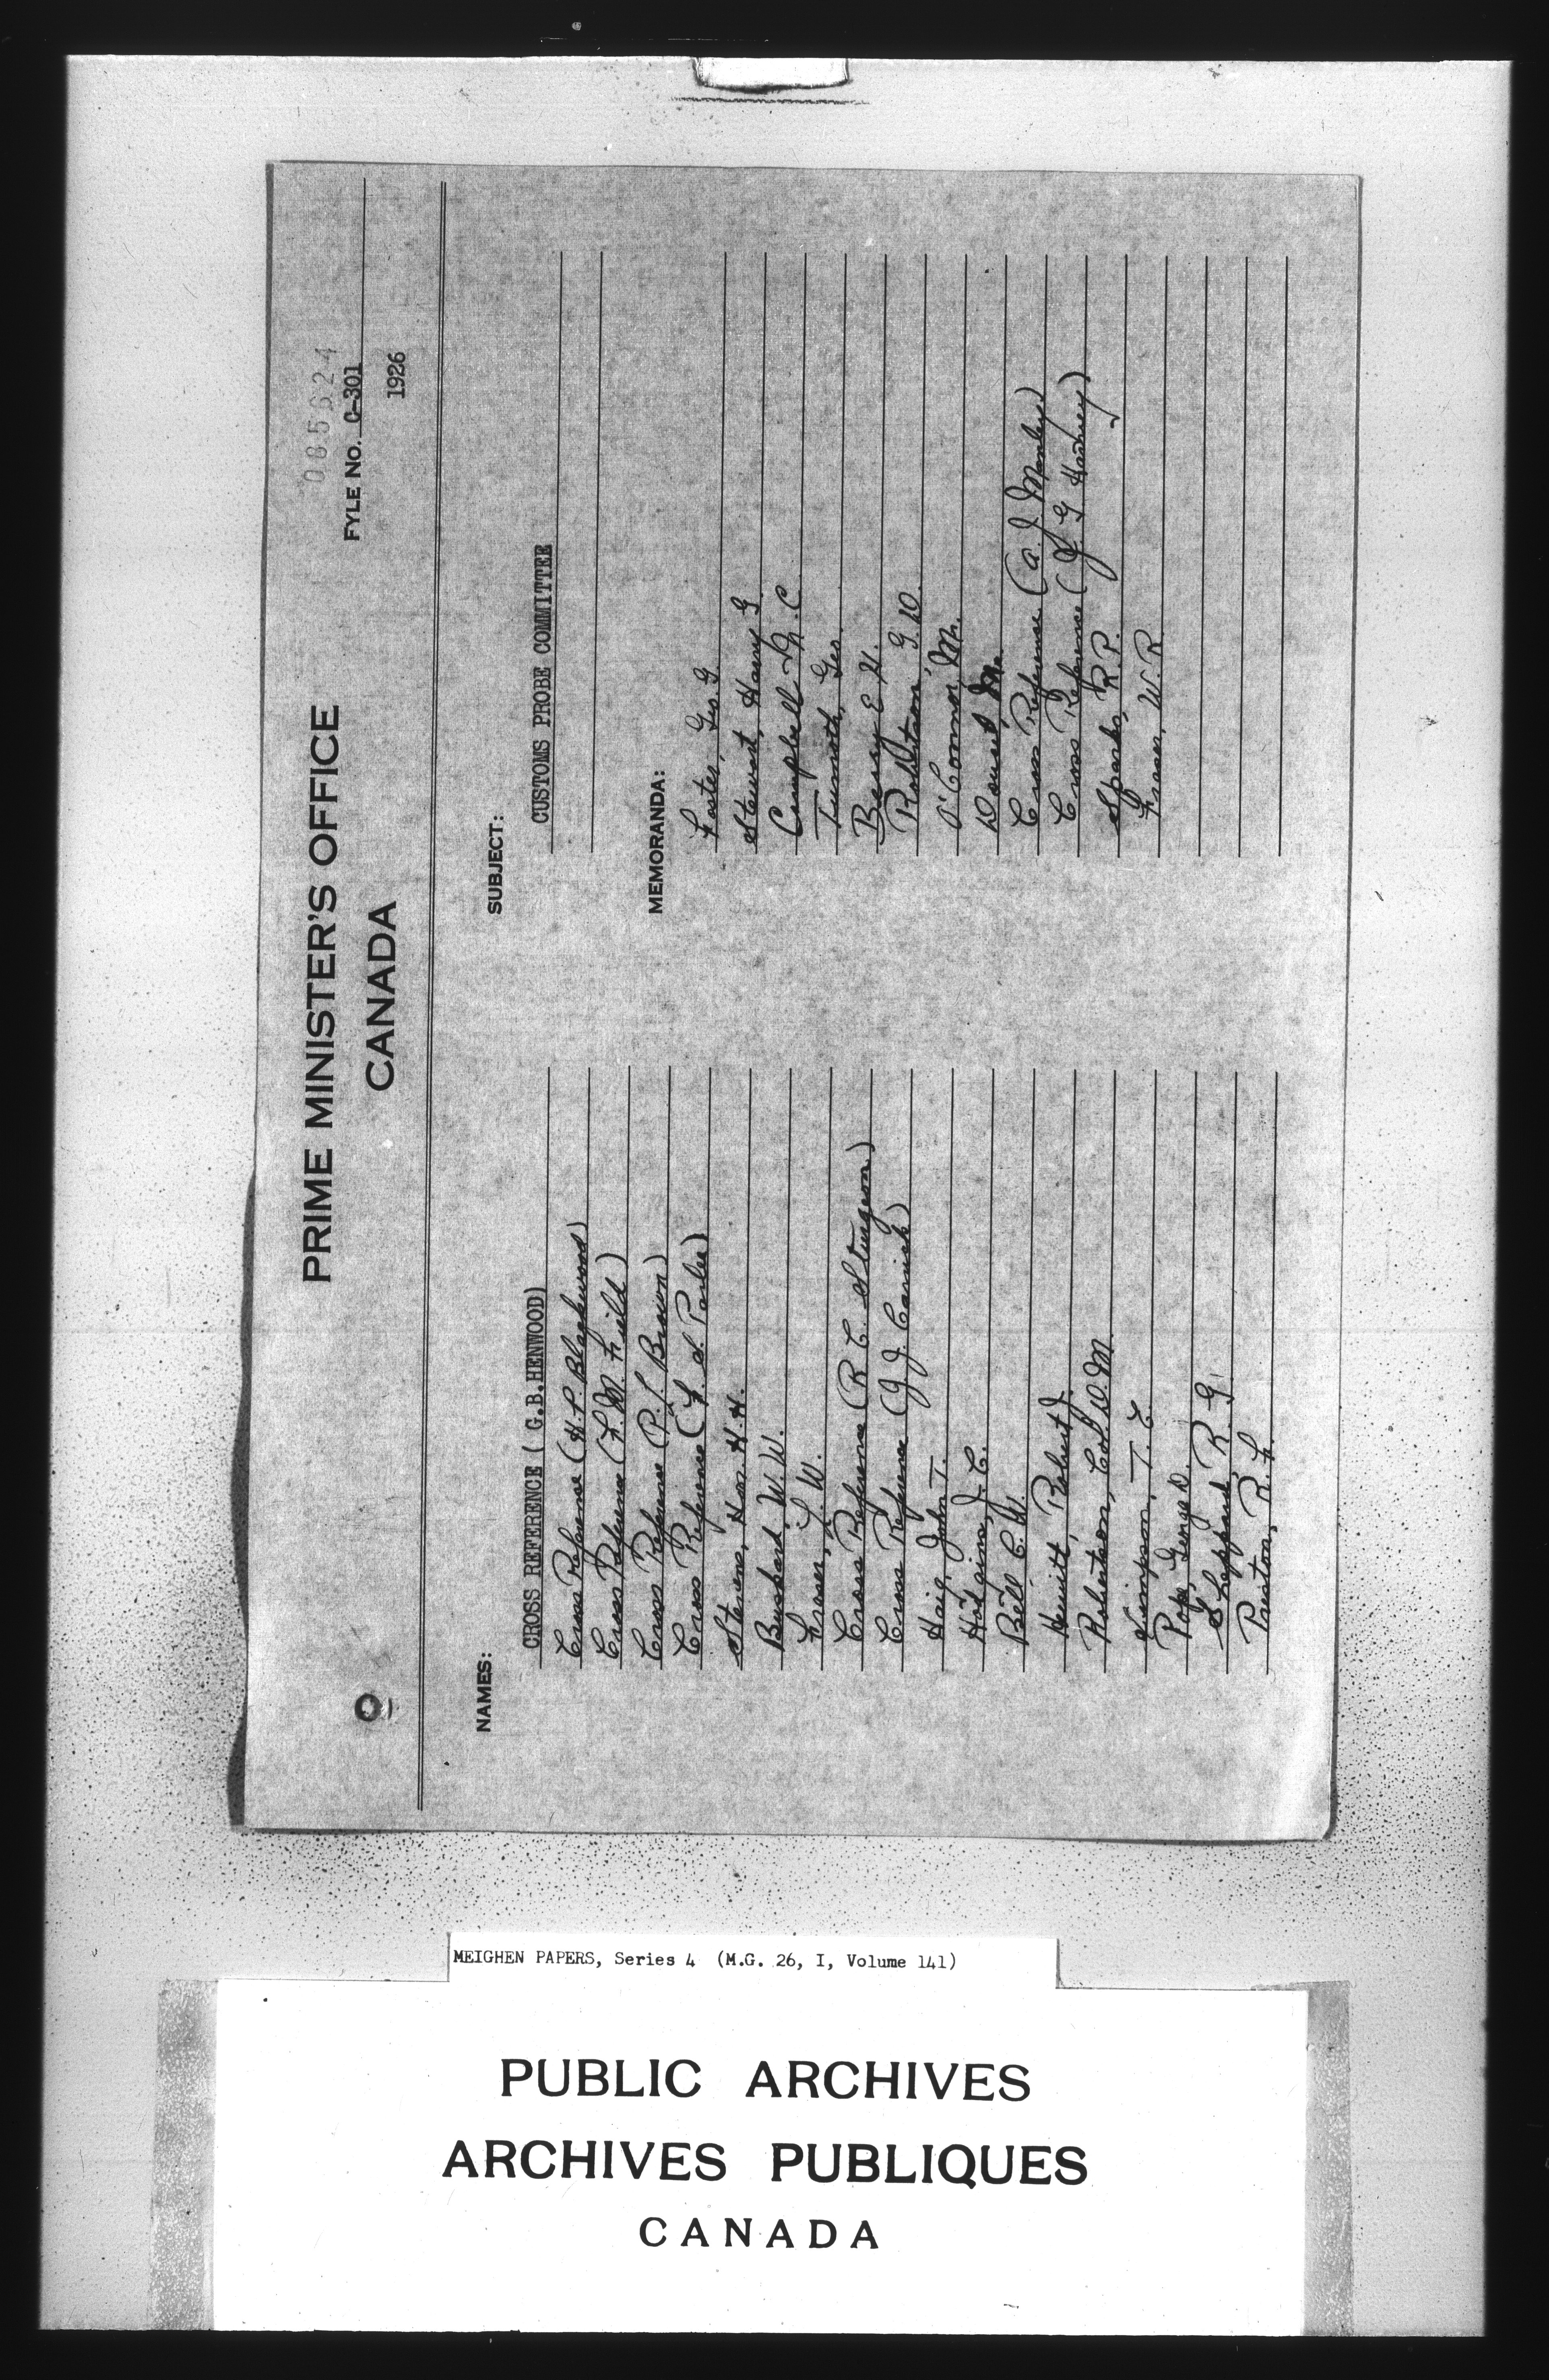 085624
FYLE No. C-301
1926
PRIME MINISTER'S OFFICE
CANADA
NAMES:
CROSS REFERENCE ( G.B.HENWOOD)
Cross Reference (H.P. Blackwood)
Cross Reference (F. M. Field)
Cross Reference (P. L. Brown)
Cross Reference (F. S. Parlee)
Stevens, Hon. H.H.
Busbard, W.W.
Fraser, L. W.
Cross Reference (R C. Sturgeon)
Cross Reference (J J Carrick)
Haig, John T.
Hodgins, J. C.
Bell C. W.
Hewitt, Robert J.
Robertson, Col. D. M.
Simpson, T. E.
Pope, George D.
Sheppard, R. G.
Preston, R. F.
SUBJECT:
CUSTOMS PROBE COMMITTEE
MEMORANDA:
Foster, Geo. G.
Stewart, Harry G
Campbell M. C.
Geo.
Berry E H.
Robertson, G. D.
O'Connor, Mr.
Doucet, Mr.
Cross Reference (A. J Manley)
Cross Reference (J. G Harvey)
Sparks, R. P.
Fraser, W. R
MEIGHEN PAPERS, Series 4 (M.G. 26, I, Volume 141)
PUBLIC ARCHIVES
ARCHIVES PUBLIQUES
CANADA